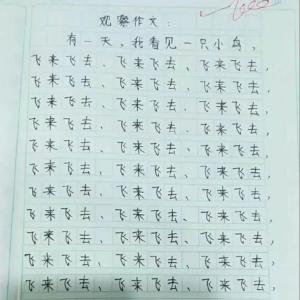 观察作文：
有一天，我看见一只小鸟，
飞来飞去、飞来飞去、飞来飞去，
飞来飞去、飞来飞去、飞来飞去，
飞来飞去、飞来飞去、飞来飞去，
飞来飞去、飞来飞去、飞来飞去，
飞来飞去、飞来飞去、飞来飞去，
飞来飞去、飞来飞去、飞来飞去，
飞来飞去、飞来飞去、飞来飞去，
飞来飞去、飞来飞去、飞来飞去，
飞来飞去、飞来飞去、飞来飞去，
飞来飞去、飞来飞去、飞来飞去，
飞来飞去、飞来飞去、飞来飞去，